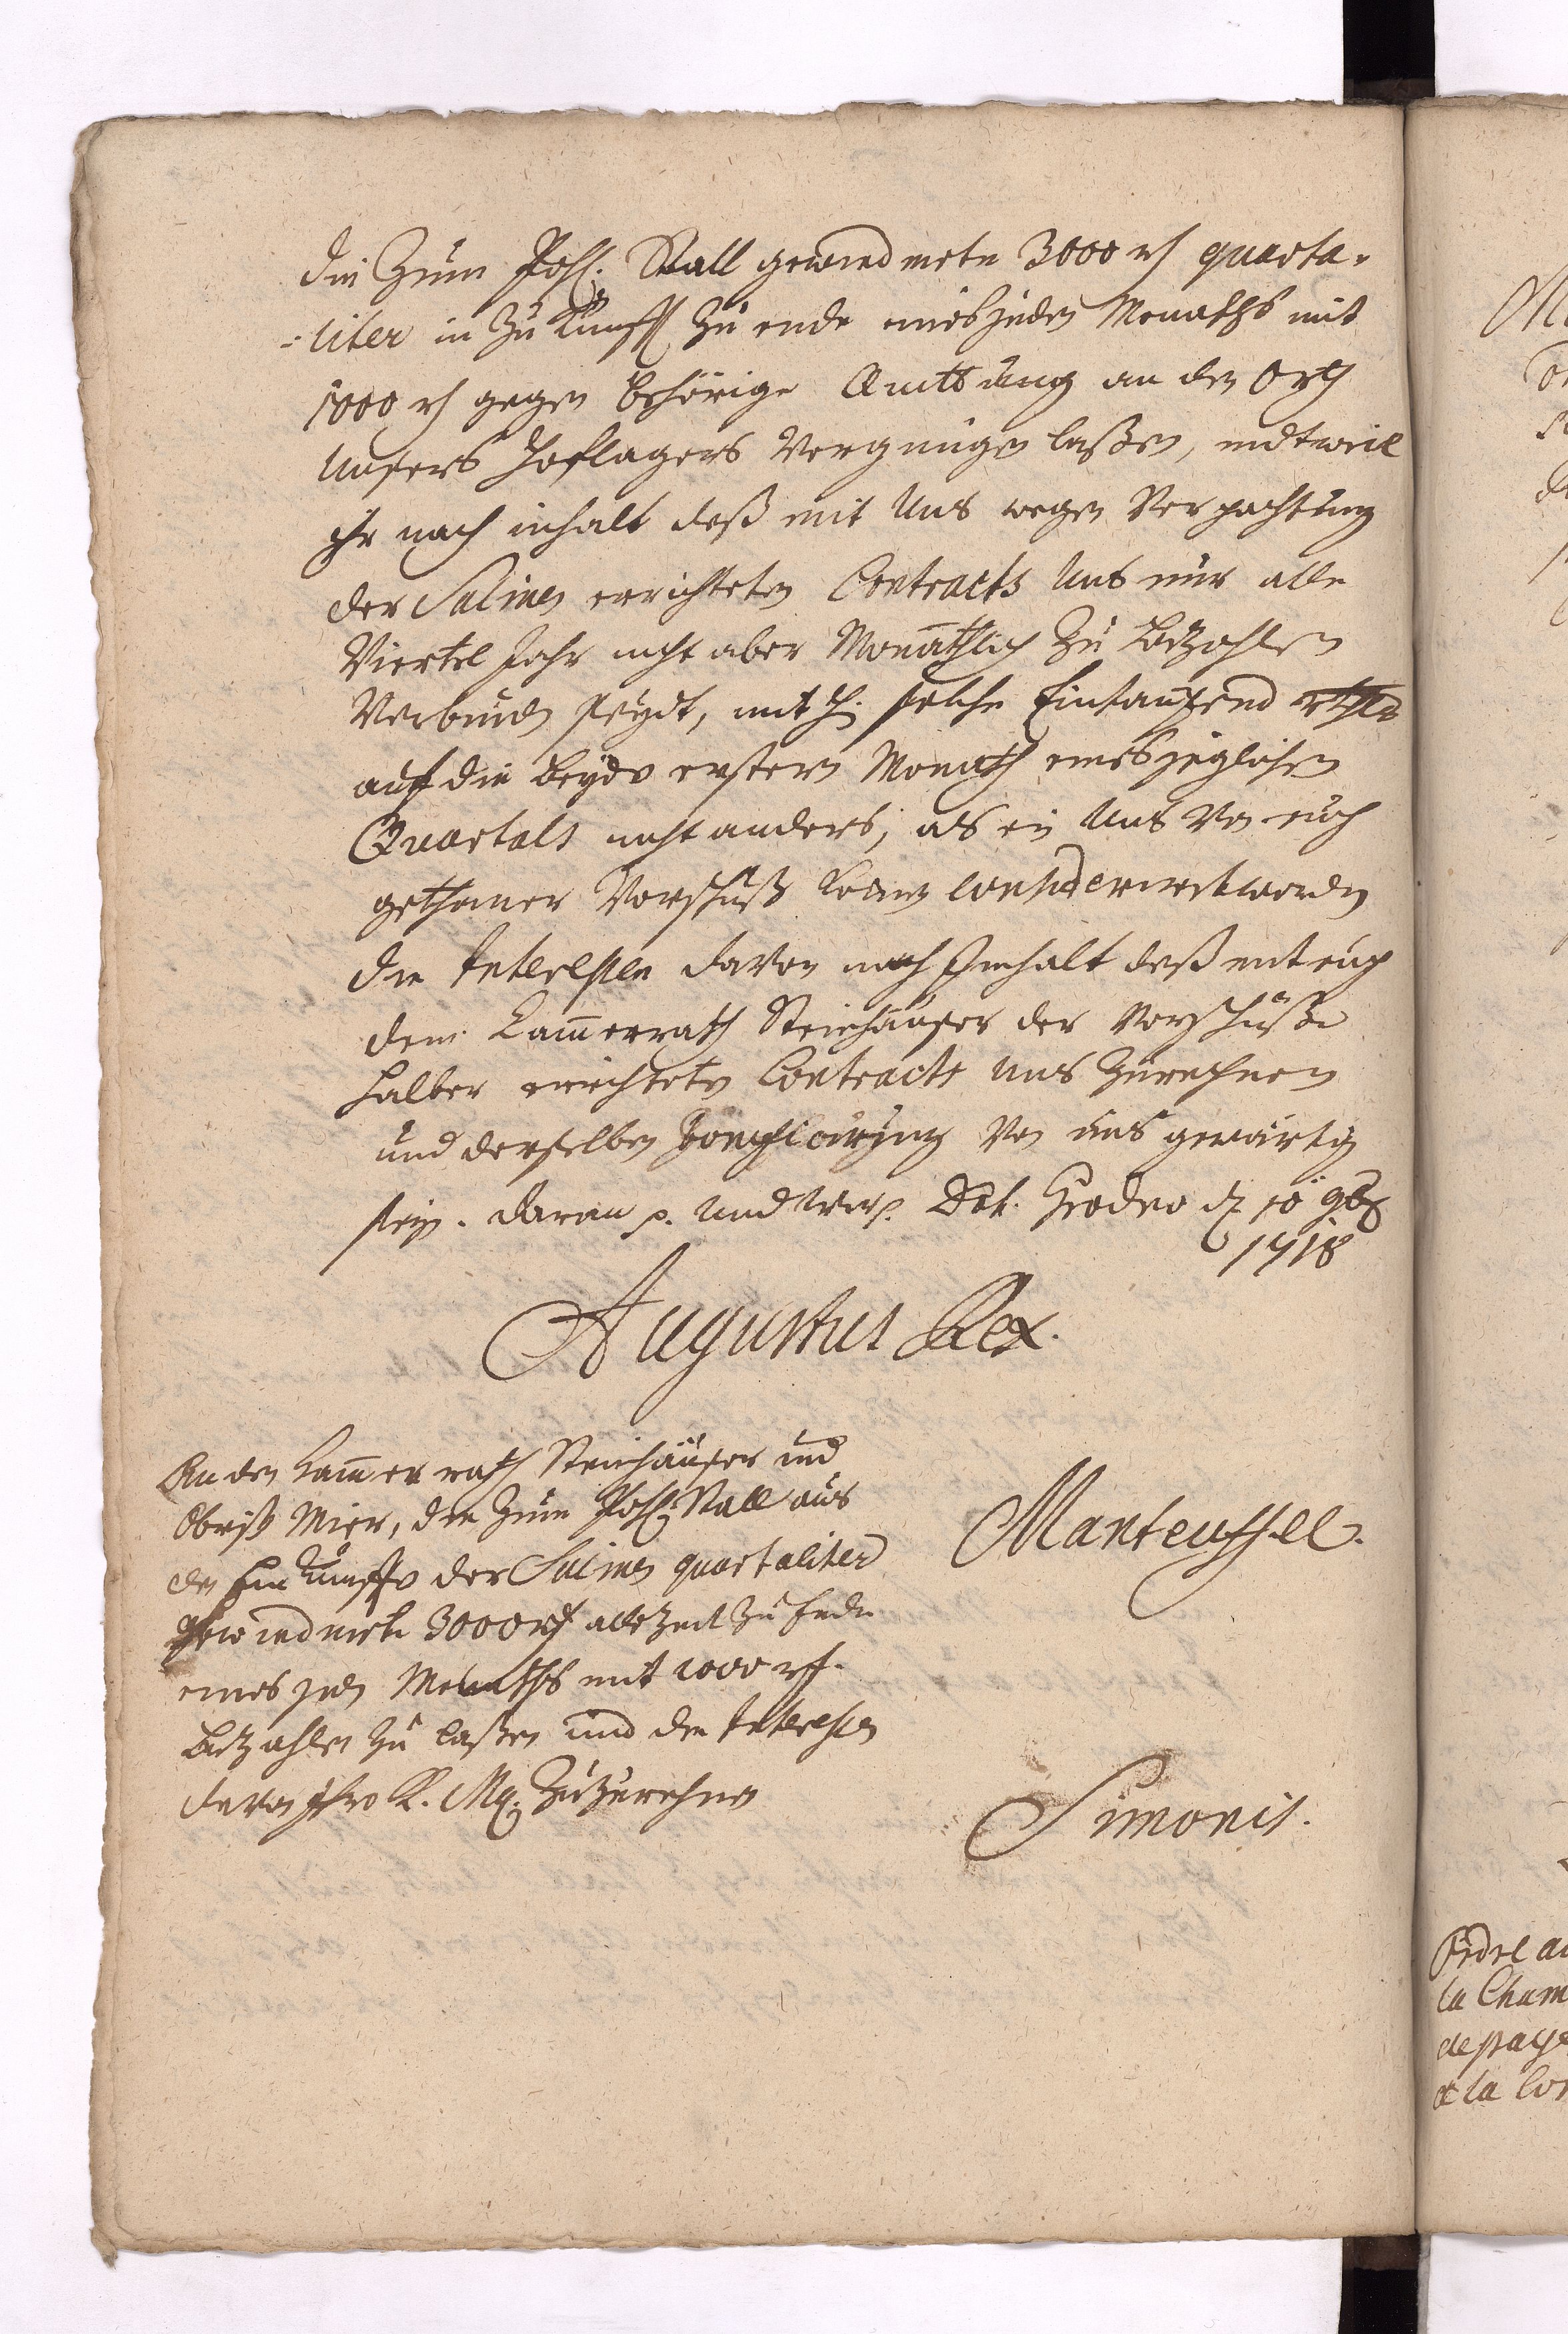 die Zum Pohl. Stall gewiedmete 3000 rh quarta-
-liter in Zukunfft zu ende eines jeden Monaths mit
1000 rh gegen behörige Quittung an den Orth
Unsers Hoflagers Vergnügen laßen, undt weil
ihr nach inhalt deß mit Uns wegen Verpachtung
der Salinen errichteten Contracts Uns nur alle
Viertel Jahr nicht aber Monathlich zu bezahlen
Verbunden seydt, mith. solche Eintausend rthlr
auf die beyde erstern Monath eines jeglichen
Quartals nicht anders, als ein Uns Von euch
gethaner Vorschuß kan consideriret werden
die Interessen davon nach Inhalt deß mit euch
dem Cammerrath Steinhäuser der Vorschüße
halber errichteten Contracts uns Zurechnen
und derselben Von uns gewärtig
seyn. daran p. Und Wir p. Dat. Grodno d. 10 9br
1718
Augustus Rex.
An den Cammerrath Steinhäuser und
Obrist Mier, die zum Pohl. Stall aus
den Einkünffte der Salinen quartaliter
gewiedmete 3000 rh allezeit zu Ende
eines jeden Monaths mit 1000 rh.
bezahlen zu laßen und die Interessen
davon Ihro K. Mq. Zuzurechnen
Manteuffel.
Simonis.
Ordre au
la Cham
de paye
a la Co